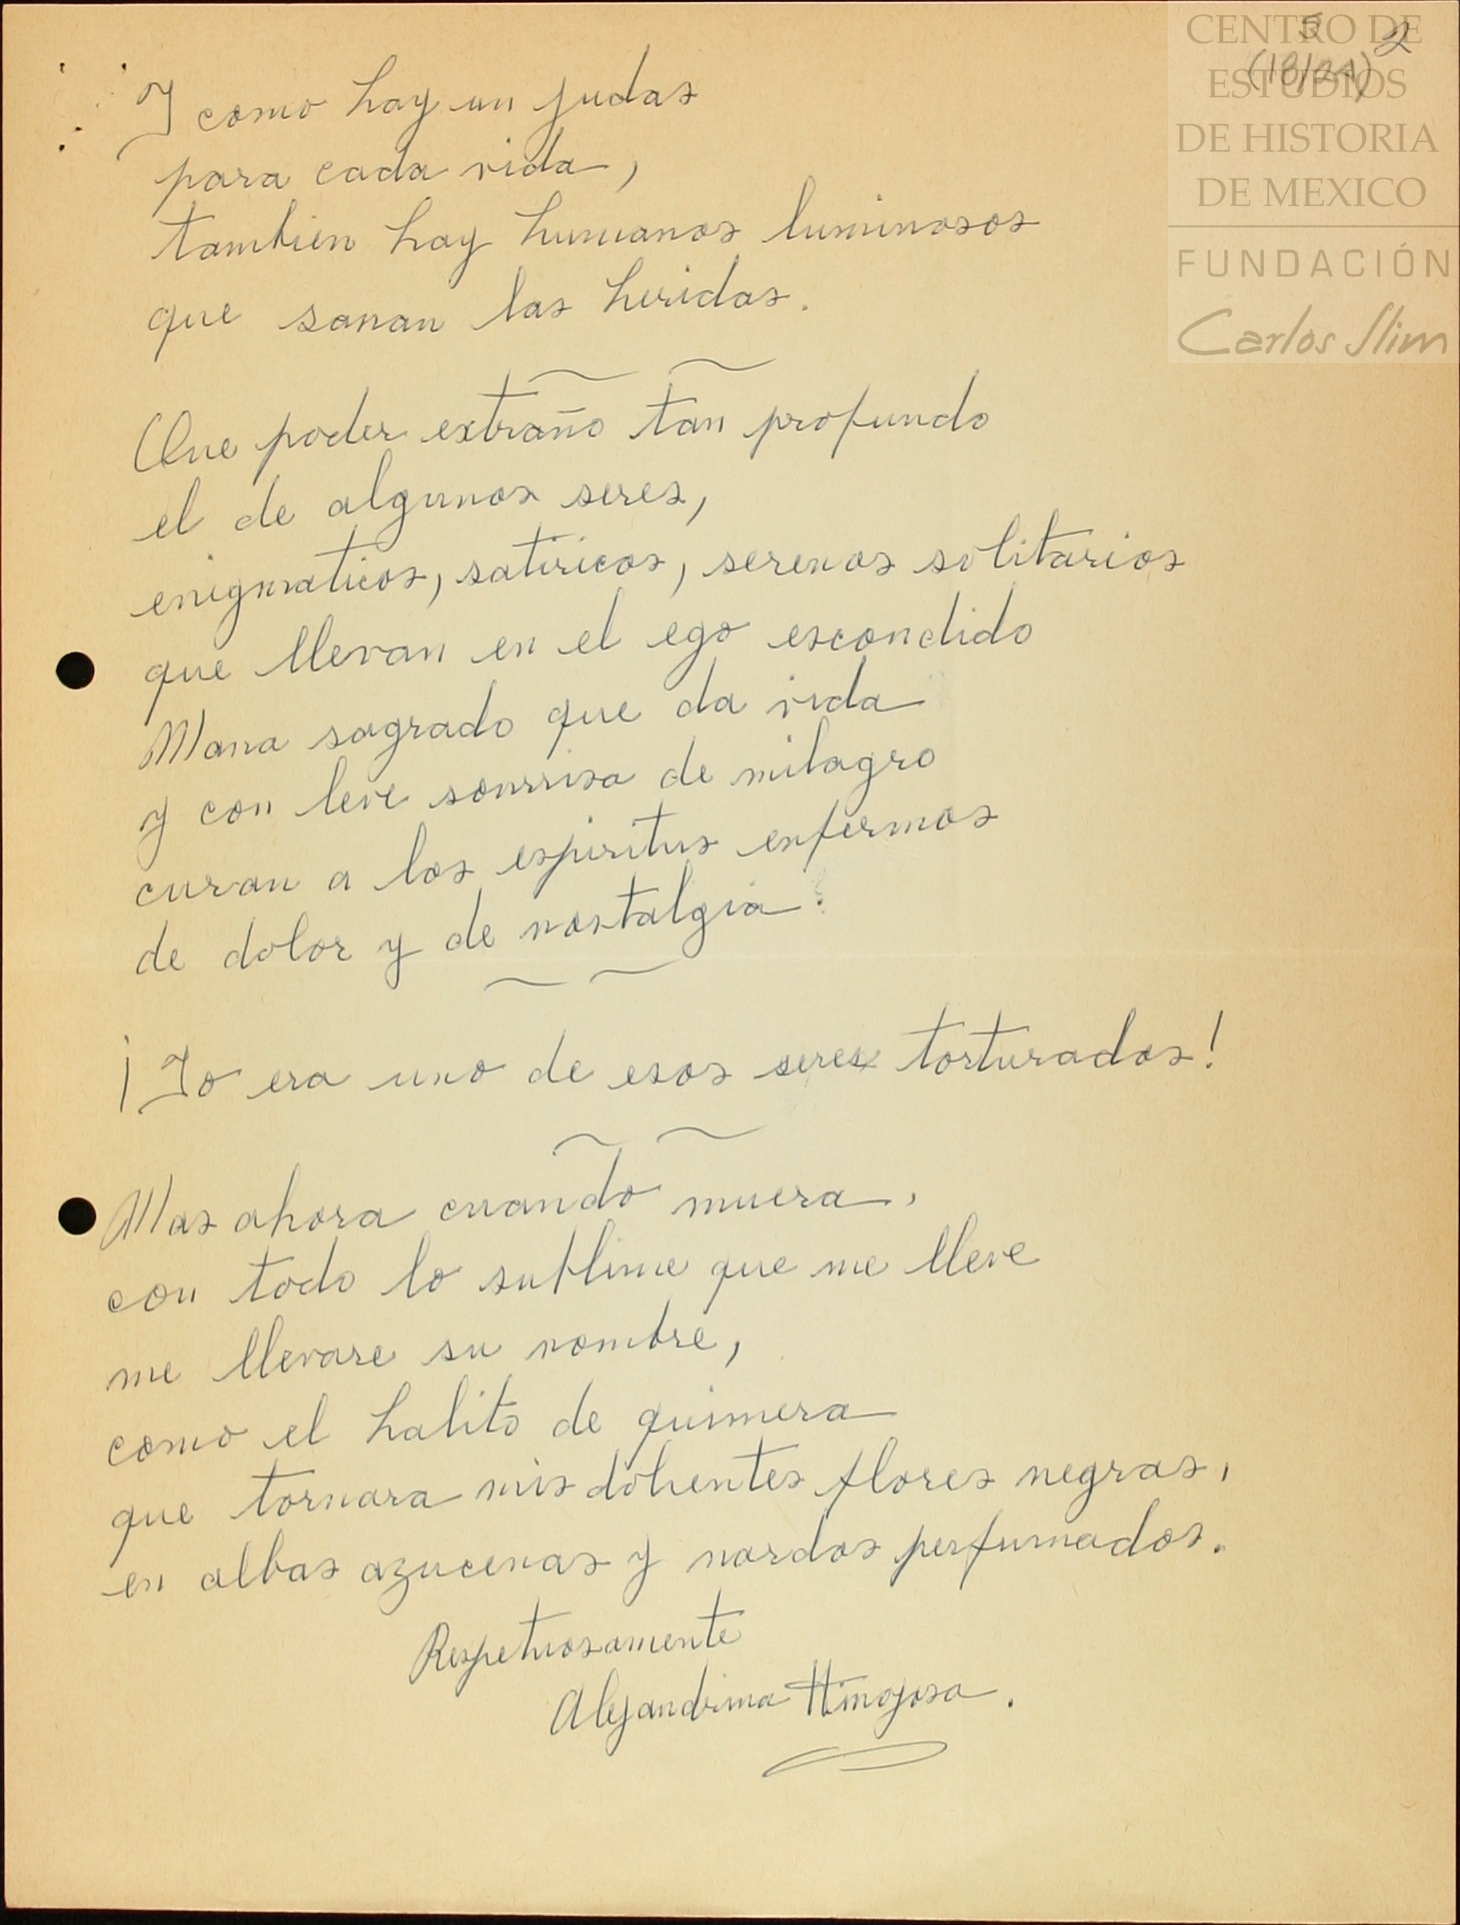 CENTRO DE
ESTUDIOS
DE HISTORIA
DE MEXICO
FUNDACIÓN
Carlos Slim
5 2
(18/21)
Y como hay un judas
para cada vida,
tambien hay humanos luminosos
que sanan las heridas.
Que poder extraño tan profundo
el de algunos seres,
enigmaticos, satiricos, serenos solitarios
que llevan en el ego escondido
Mana sagrado que da vida
y con leve sonrrisa de milagro
curan a los espiritus enfermos
de dolor y de nostalgia.
¡Yo era uno de esos seres torturados!
Mas ahora cuando muera,
con todo lo sublime que me lleve
me llevare su nombre,
como el halito de quimera
que tornara mis dolientes flores negras,
en albas azucenas y nardos perfumados.
Respetuosamente
Alejandrina Hinojosa.